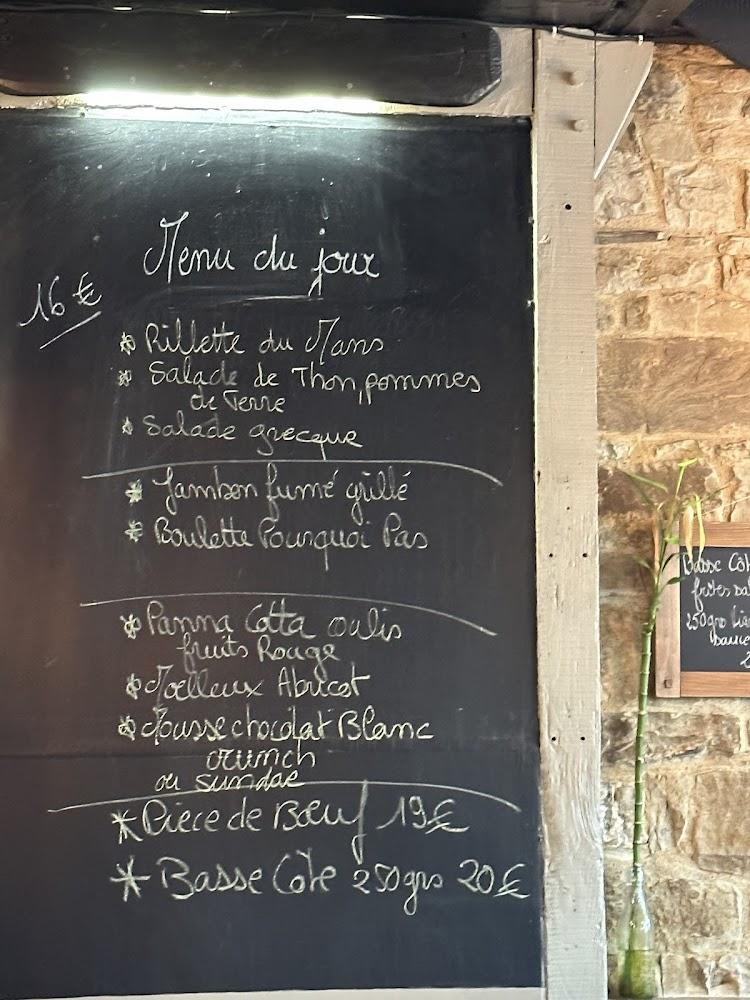 Menu du jour
16 €
* Rillette du Mans
* Salade de Thon, pommes
de Terre
* Salade grecque
* Jambon fumé grillé
* Boulette Pourquoi Pas
* Panna Cotta coulis
fruits Rouge
* Moelleux Abricot
* Mousse chocolat Blanc
crunch
ou sundae
* Pièce de Bœuf 19€
* Basse Côte 250grs 20€
Basse Côt
frites
250grs
sauce